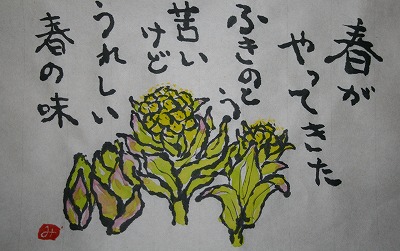 春が
やってきた
ふきのとう
苦い
けど
うれしい
春の味
み